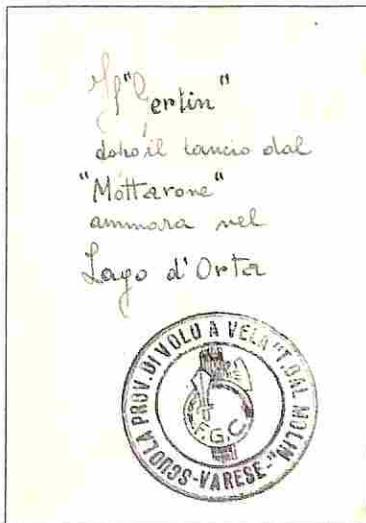 Il "Gerlin"
dopo il lancio dal
"Mottarone"
ammara nel
Lago d'Orta
SCUOLA PROV. DI VOLO A VELA "T. DAL MOLIN"
-VARESE-
F.G.C.